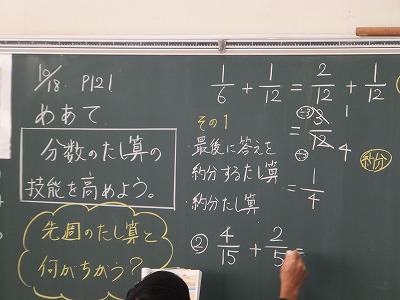 10/18 P121
めあて
分数のたし算の
技能を高めよう。
先週のたし算と
何がちがう?
1/6 + 1/12 = 2/12 + 1/12
= 3/12
1
4
= 1/4
約分
その1
最後に答えを
約分するたし算
約分たし算
② 4/15 + 2/5 =